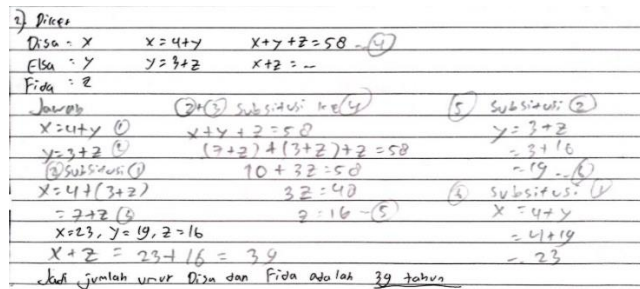 2) Diket
Disa = x    x = 4+y    x+y+z = 58 - (4)
Elsa = y    y = 3+z    x+z = ...
Fida = z
Jawab
x = 4+y (1)
y = 3+z (2)
(2) subsitusi (1)
x = 4+(3+z)
= 7+z (3)
(2)+(3) subsitusi ke (4)
x+y+z = 58
(7+z)+(3+z)+z = 58
10+3z = 58
3z = 48
z = 16 - (5)
(5) subsitusi (2)
y = 3+z
= 3+16
= 19 - (6)
subsitusi (1)
x = 4+y
= 4+19
= 23
x=23, y=19, z=16
x+z = 23+16 = 39
Jadi jumlah umur Disa dan Fida adalah 39 tahun